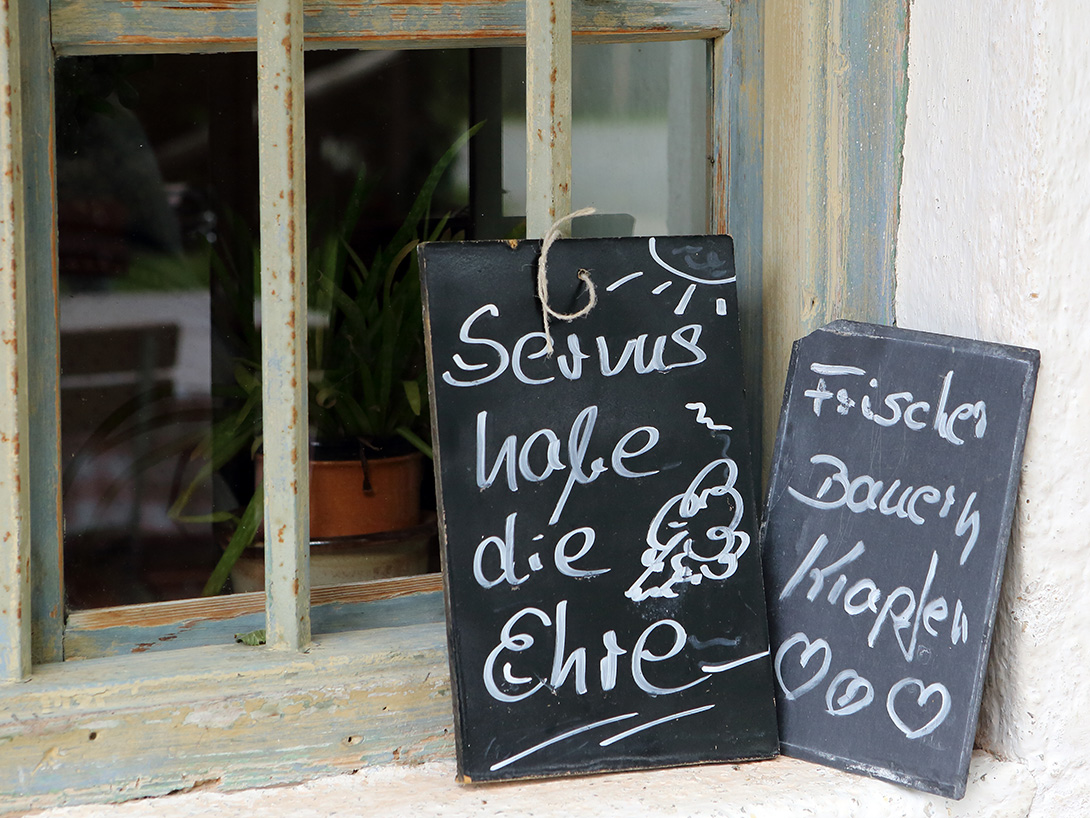 Servus
habe
die
Ehre
Frischer
Bauern
Krapfen